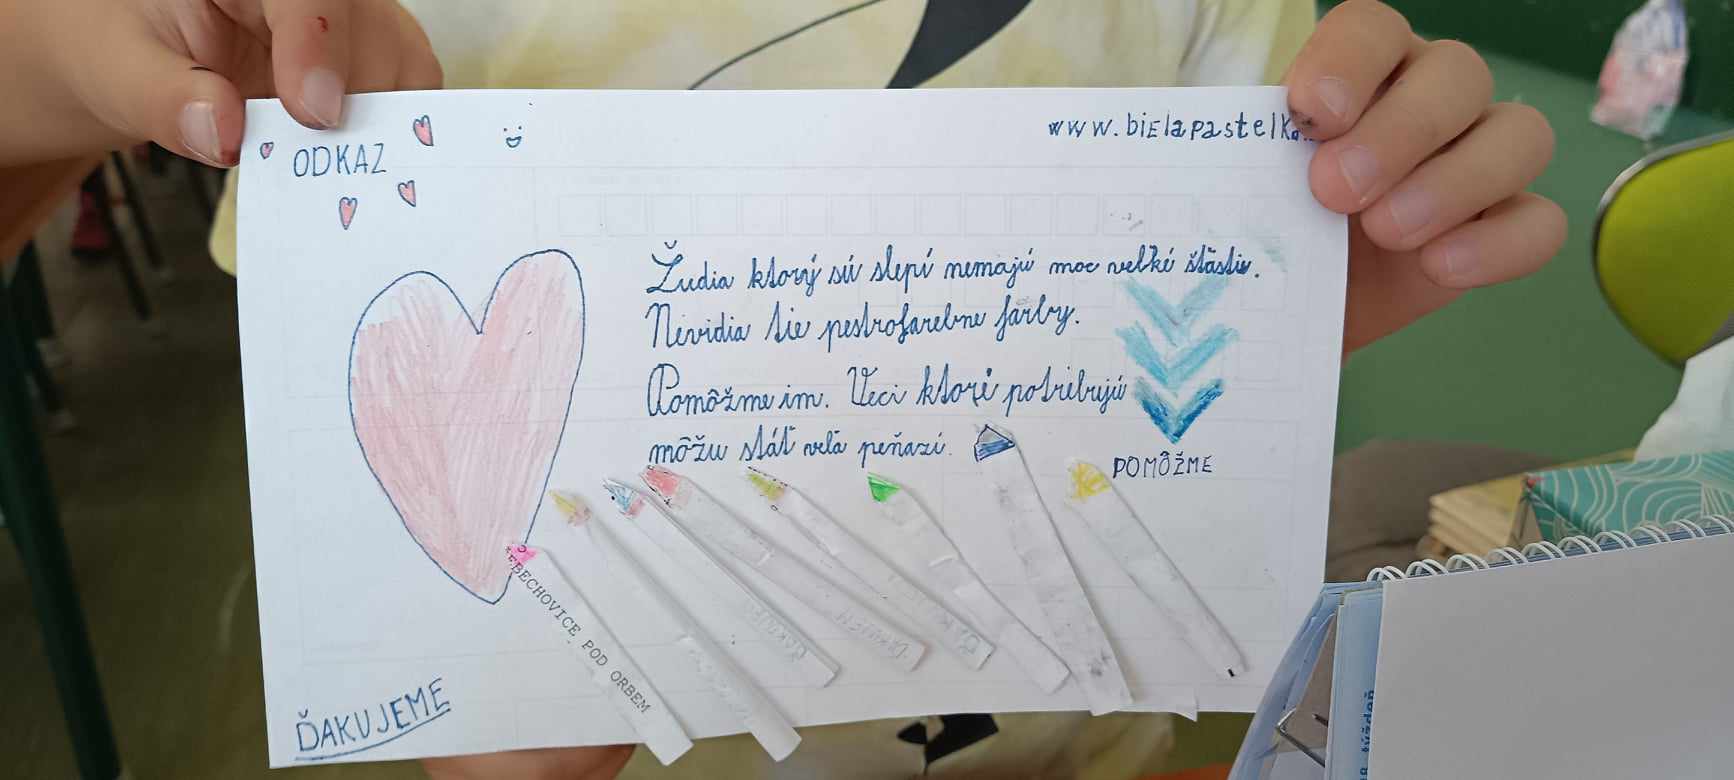 ODKAZ
www.bielapastelka
Ľudia ktorý sú slepí nemajú moc veľké šťastie.
Nevidia tie pestrofarebne farby.
Pomôžme im. Veci ktoré potrebujú
môžu stáť veľa peňazí.
POMÔŽME
ŘEBECHOVICE POD ORBEM
ĎAKUJEME
týždeň